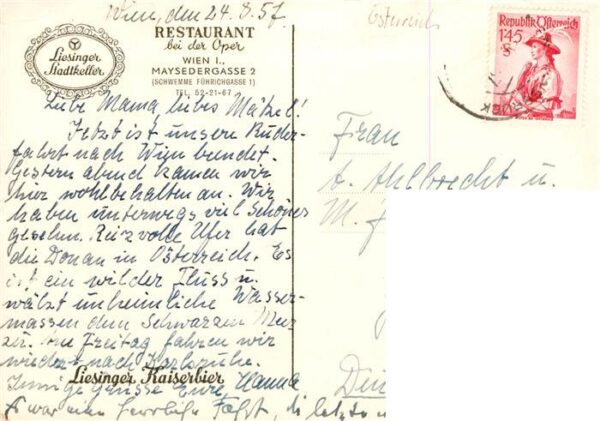 Wien, den 24. 8. 57
Österreich
Liesinger
Stadtkeller
RESTAURANT
bei der Oper
WIEN I.,
MAYSEDERGASSE 2
(SCHWEMME FÜHRICHGASSE 1)
TEL. 52-21-67
Liebe Mama, liebes Mätzel!
Jetzt ist unsere Ruder-
fahrt nach Wien beendet.
Gestern abend kamen wir
hier wohlbehalten an. Wir
haben unterwegs viel Schönes
gesehn. Reizvolle Ufer hat
die Donau in Österreich. Es
ist ein wilder Fluss u.
wälzt unheimliche Wasser-
massen dem Schwarzen Meer
zu. Am Freitag fahren wir
wieder nach Karlsruhe.
Innige Grüsse Eure Hanna
Liesinger Kaiserbier
Es war eine herrliche Fahrt, die letzte
Republik Österreich
1·45
S
Frau
A. Ahlbrecht u.
M.